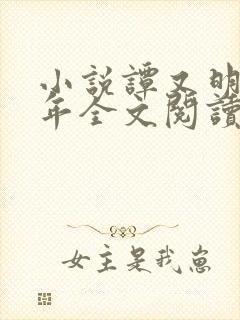 小說譚又明
年全文閱讀
女主是我崽